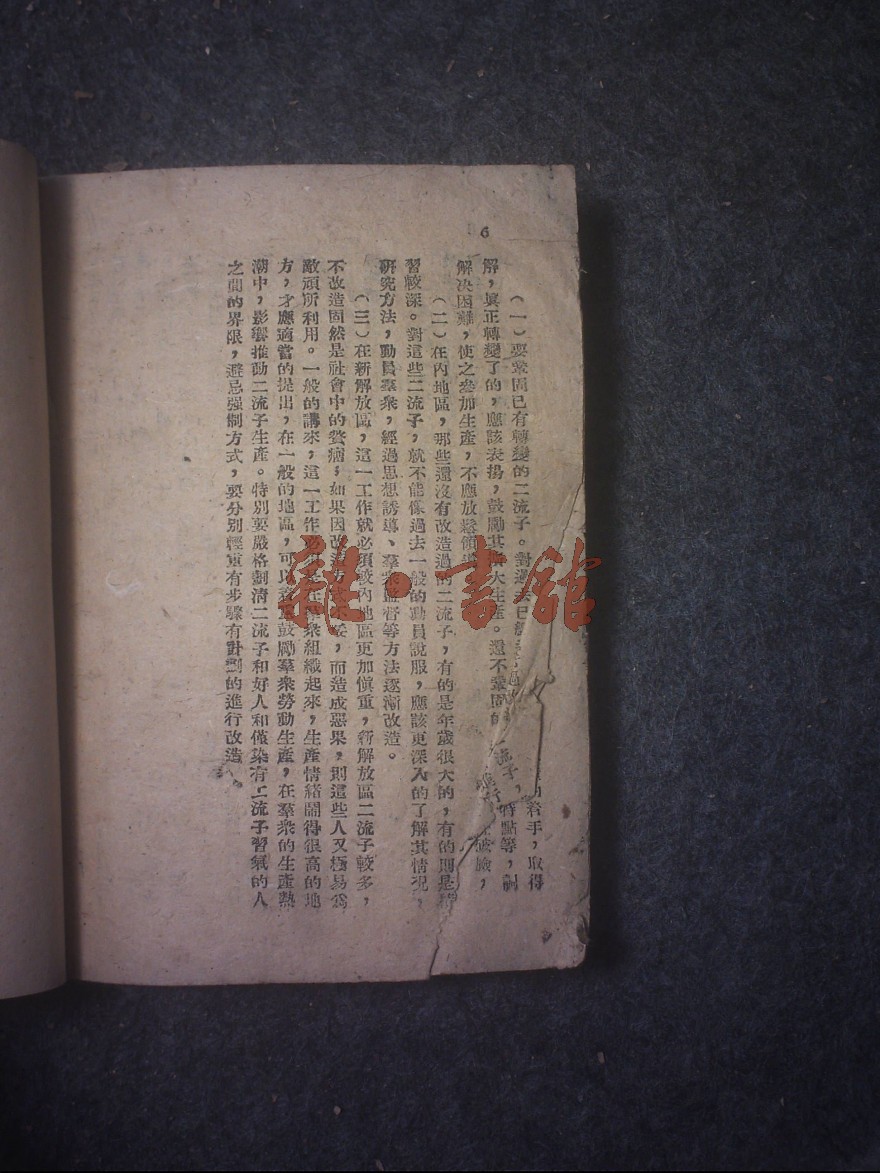 6
(一)要鞏固已有轉變的二流子。對過去已
着手,取得
解,眞正轉變了的,應該表揚,鼓勵其擴大生產。還不鞏固的
流子,
特點等,
解决困難,使之參加生產,不應放鬆領導
(二)在內地區,那些還沒有改造過的二流子,有的是年歲很大的,有的則是
習較深。對這些二流子,就不能像過去一般的動員說服,應該更深入的了解其情況,
研究方法,動員羣衆,經過思想誘導、羣衆監督等方法逐漸改造。
(三)在新解放區,這一工作就必須較內地區更加愼重,新解放區二流子較多,
不改造固然是社會中的贅瘤;如果因改造方式不妥,而造成惡果,則這些人又極易爲
敵頑所利用。一般的講來,這一工作必須是在羣衆組織起來,生產情緒鬧得很高的地
方,才應適當的提出,在一般的地區,可以着重鼓勵羣衆勞動生產,在羣衆的生產熱
潮中,影響推動二流子生產。特別要嚴格劃清二流子和好人和僅染有二流子習氣的人
之間的界限,避忌强制方式,要分别輕重有步驟有計劃的進行改造。
雜·書館